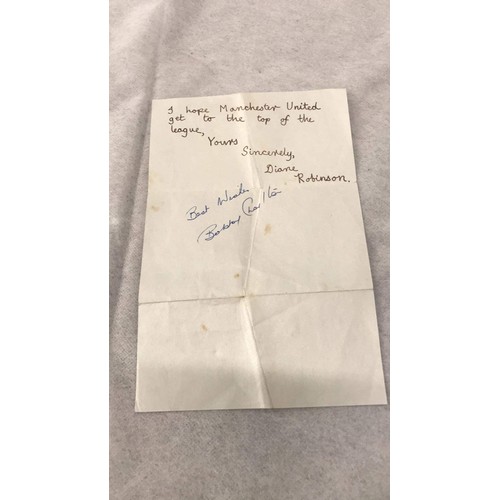 I hope Manchester United
get to the top of the
league,
Yours
Sincerely,
Diane
Robinson.
Best Wishes
Bobby Charlton